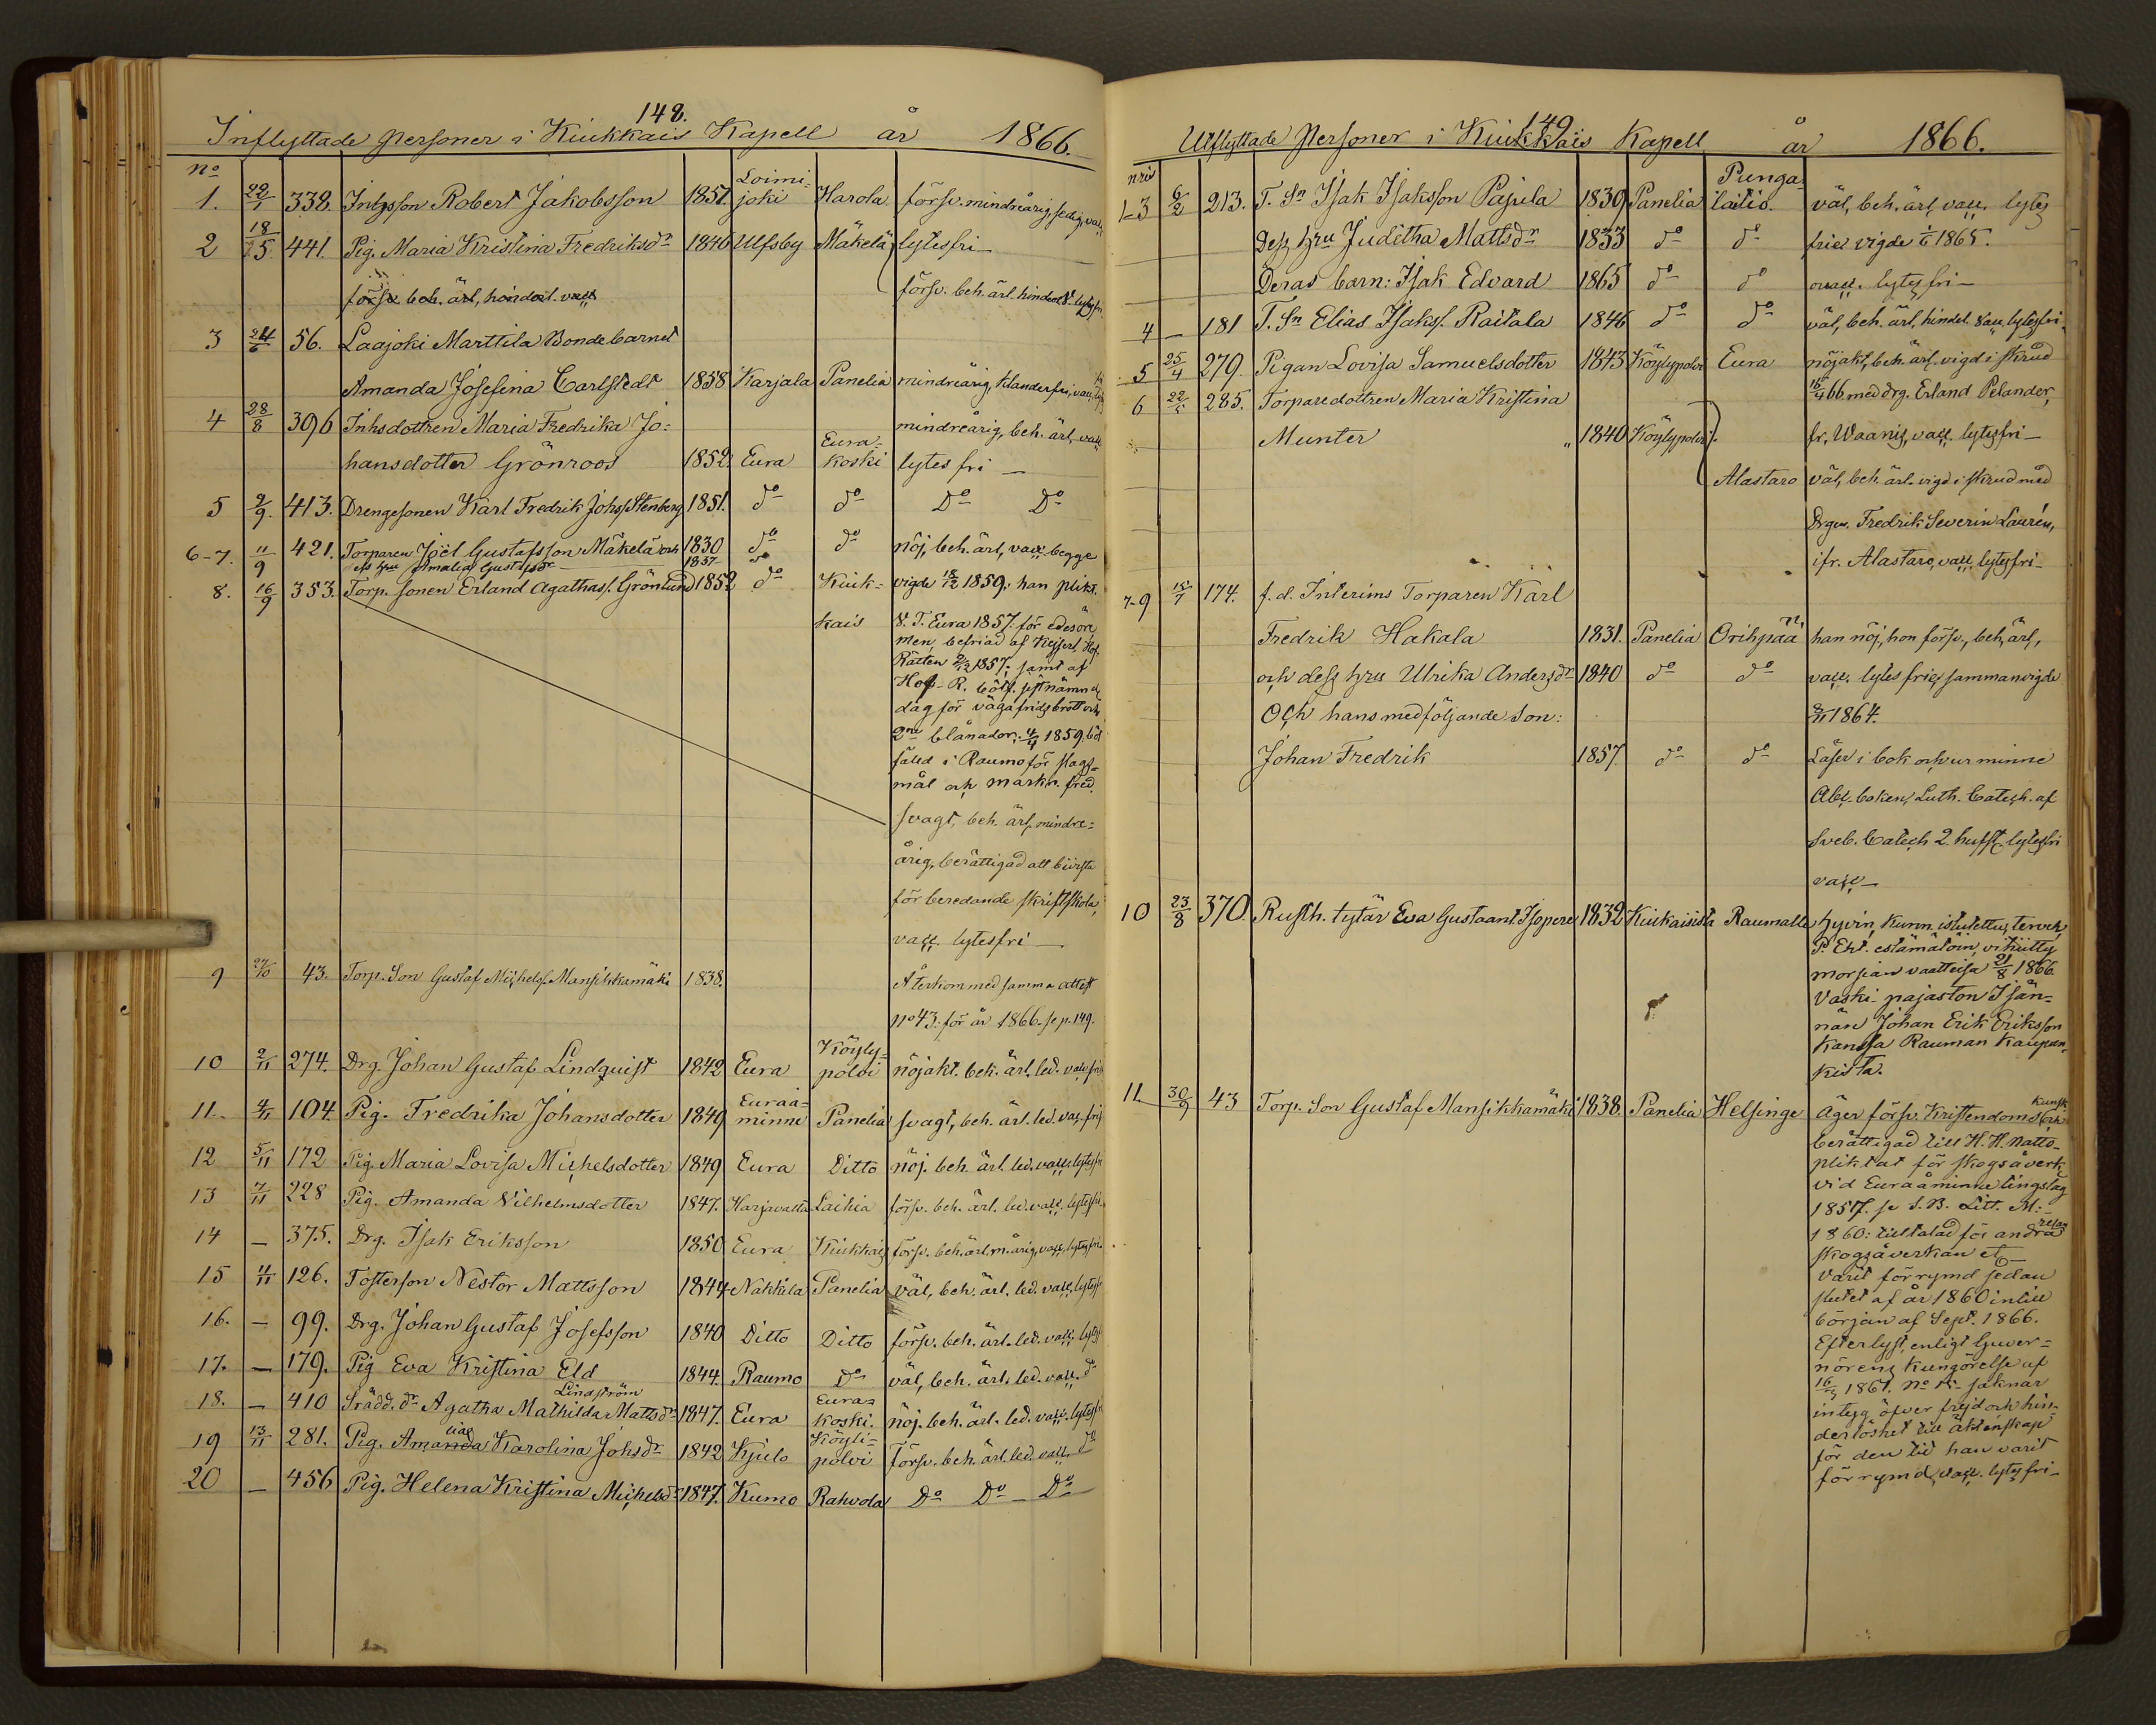 148.
Inflyttade Personer i Kiukkais Kapell år 1866.
No
1. 22/1 338. Inhysson Robert Jakobsson 1851. Loimi-
joki Harola försv. mindreårig, ledig, vacc
2 18/5 441. Pig. Maria Kristina Fredriksdr 1846 Ulfsby Mäkelä lytesfri
försv. beh. ärl, hinderl. vacc försv. beh. ärl. hinderl. lytesfri
3 24/6 56. Laajoki Marttila Bondebarnet
Amanda Josefina Carlstedt 1858 Karjala Panelia mindreårig, klanderfri, vacc
4 28/8 396 Inhsdottren Maria Fredrika Jo- mindreårig, beh. ärl, vacc
hansdotter Grönroos 1852. Eura Eura-
koski lytes fri
5 2/9. 413. Drengesonen Karl Fredrik Johss Stenberg 1851. do do Do Do
6-7. 11/9 421. Torparen Joël Gustafsson Mäkelä och 1830 do do nöj, beh. ärl, vacc begge
dess hru Amalia Gustafsdr 1837 do
8. 16/9 353. Torp. sonen Erland Agathas. Grönlund 1852 do Kiuk- vigde 18/12 1859; han plikt.
kais V. T. Eura 1857. för edesöre
men, befriad af Kejserl. Hof-
Rätten 2/12 1857; samt af
Hof-R. bötf. sistnämnde
dag för vägafridsbrott och
2ne blånader; 4/4 1859. böt
fäld i Raumo för slags-
mål och markn. fred.
svagt, beh. ärl. mindre-
årig, berättigad att bivista
för beredande skriftskola,
vacc. lytesfri
9 27/10 43. Torp. Son Gustaf Michelss. Mansikkamäki 1838. Återkom med samma attest
no 43. för år 1866. se p. 149.
10 2/11 274. Drg. Johan Gustaf Lindquist 1842 Eura Köyly-
polvi nöjakt. beh. ärl. led. vacc fri
11. 4/11 104. Pig. Fredrika Johansdotter 1849 Euraå-
minne Panelia svagt, beh. ärl. led. vacc fri
12 5/11 172 Pig. Maria Lovisa Michelsdotter 1849 Eura Ditto nöj. beh. ärl. led. vacc. lytesfri
13 7/11 228 Pig. Amanda Vilhelmsdotter 1847. Harjavalta Laihia försv. beh. ärl. led. vacc. lytesfri
14 — 375. Drg. Isak Eriksson 1850 Eura Kiukkais försv. beh. ärl. m. årig, vacc, lytesfri.
15 4/11 126. Fosterson Nestor Mattsson 1844 Nakkila Panelia väl, beh. ärl. led. vacc, lytesfr
16. — 99. Drg. Johan Gustaf Josefsson 1840 Ditto Ditto försv. beh. ärl. led. vacc. lytesf
17. — 179. Pig Eva Kristina Eld 1844. Raumo Do väl, beh. ärl. led. vacc. do
18. — 410 Skrädd. dr Agatha Mathilda Mattsdr Lindström 1847. Eura Eura-
koski. nöj. beh. ärl. led. vacc. lytesfr
19 13/11 281. Pig. Amanda lia Karolina Johsdr 1842 Kjulo Köyli-
polvi Försv. beh. ärl. led. vacc. do
20 — 456 Pig. Helena Kristina Michelsdr 1847. Kumo Rahvola Do Do Do
149
Utflyttade Personer i Kiukkais Kapell år 1866.
nris
1-3 6/2 213. T. Sn Isak Isaksson Pajula 1839 Panelia Punga-
laitio. väl, beh. ärl, vacc. lytes
Dess hru Juditha Mattsdr 1833 do do frie vigde 1/6 1865.
Deras barn: Isak Edvard 1865 do do ovacc. lytesfri
4 — 181 T. Sn Elias Isakss. Raitala 1846 do do väl, beh. ärl, hindel. vacc lytesfri.
5 25/4 279. Pigan Lovisa Samuelsdotter 1843 Köylypolvi Eura nöjakt, beh. ärl, vigd i Skrud
15/4 66 med drg. Erland Pelander,
6 22/5 285. Torparedottren Maria Kristina
Munter 1840 Köylypolvi fr. Waanis, vacc. lytesfri
Alastaro väl, beh. ärl. vigd i Skrud med
Drgen. Fredrik Severin Laurén,
ifr. Alastaro, vacc. lytesfri
7-9 15/7 174. f. d. Interims Torparen Karl
Fredrik Hakala 1831. Panelia Orihpää han nöj, hon försv., beh, ärl,
och dess hru Ulrika Andersdr 1840 do do vacc. lytesfrie, sammanvigde
Och hans medföljande son: 3/11 1864.
Johan Fredrik 1857. do do Läser i bok och ur minne
Abc-boken, Luth. Catech. af
Sveb. Catech 2 hufst. lytesfri
vacc
10 23/8 370. Rusth. tytär Eva Gustaant. Isopere 1832 Kiukaisista Raumalle hyvin, kunn. istutettu, terveh,
P. Eht. estämätöin, vihitty
morsian vaatteisa 21/8 1866
Vaski-pajaston Isän-
nän Johan Erik Eriksson
kanssa Rauman Kaupun-
kista.
11 30/9 43 Torp. Son Gustaf Mansikkamäki 1838. Panelia Helsinge Äger försv. Kristendomskunsk och
berättigad till H. H. Natto-
pliktat för skogsåverk
vid Euraåminne tingslag
1857. se S. B. Litt. M:-
1860: tilltalad för andra resan
skogsåverkan etc
varit förrymd sedan
slutet af år 1860 intill
början af Sept. 1866.
Efterlyst, enligt Guver-
nörens Kungörelse af
16/3 1861. No 15- saknar
intyg öfver frejd och hin-
derlöshet till äktenskap
för den tid han varit
förrymd, vacc. lytesfri